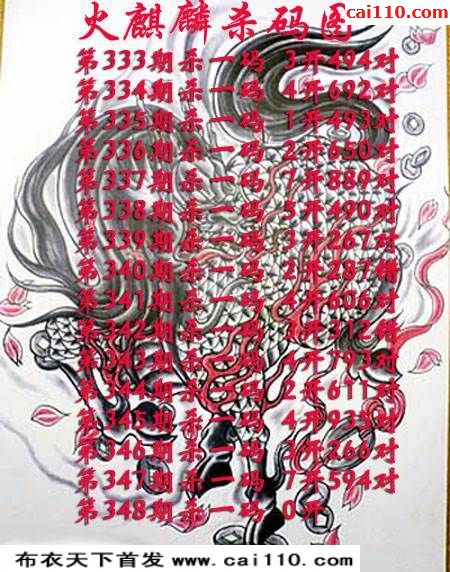 cai110.com
火麒麟杀码图
第333期杀一码 3开494对
第334期杀一码 4开692对
第335期杀一码 1开493对
第336期杀一码 2开650对
第337期杀一码 7开889对
第338期杀一码 5开490对
第339期杀一码 3开267对
第340期杀一码 2开287错
第341期杀一码 4开606对
第342期杀一码 开312错
第343期杀一码 4开793对
第344期杀一码 2开611对
第345期杀一码 4开935对
第346期杀一码 3开266对
第347期杀一码 7开594对
第348期杀一码 0开
布衣天下首发 www.cai110.com